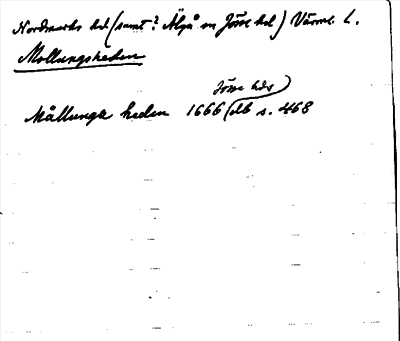 Nordmarks hd (samt? Älgå sn Jösse hd) Värml. L.
Mollungsheden
Jösse hds
Mållunga heden 1666 (db s. 468